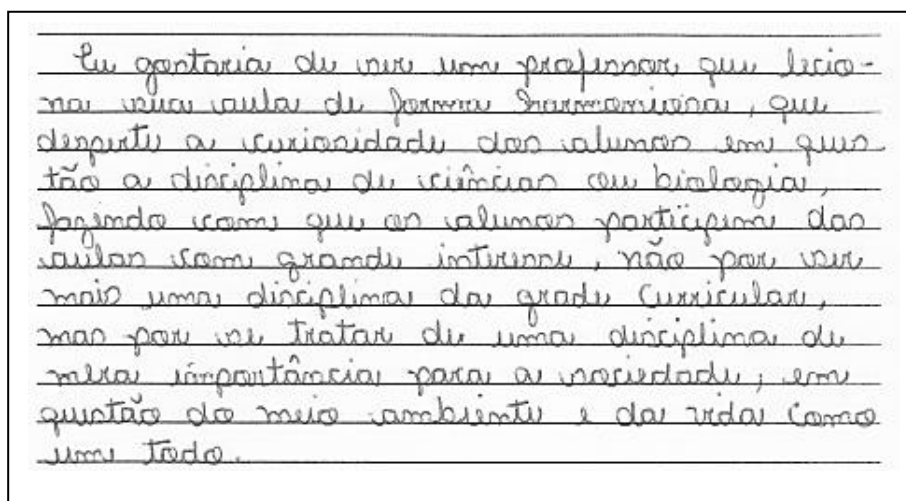 Eu gostaria de ser um professor que lecio-
na sua aula de forma harmoniosa, que
desperte a curiosidade dos alunos em ques
tão a disciplina de ciências ou biologia,
fazendo com que os alunos participem das
aulas com grande interesse, não por ser
mais uma disciplina da grade curricular,
mas por se tratar de uma disciplina de
mera importância para a sociedade; em
questão do meio ambiente e da vida como
um todo.